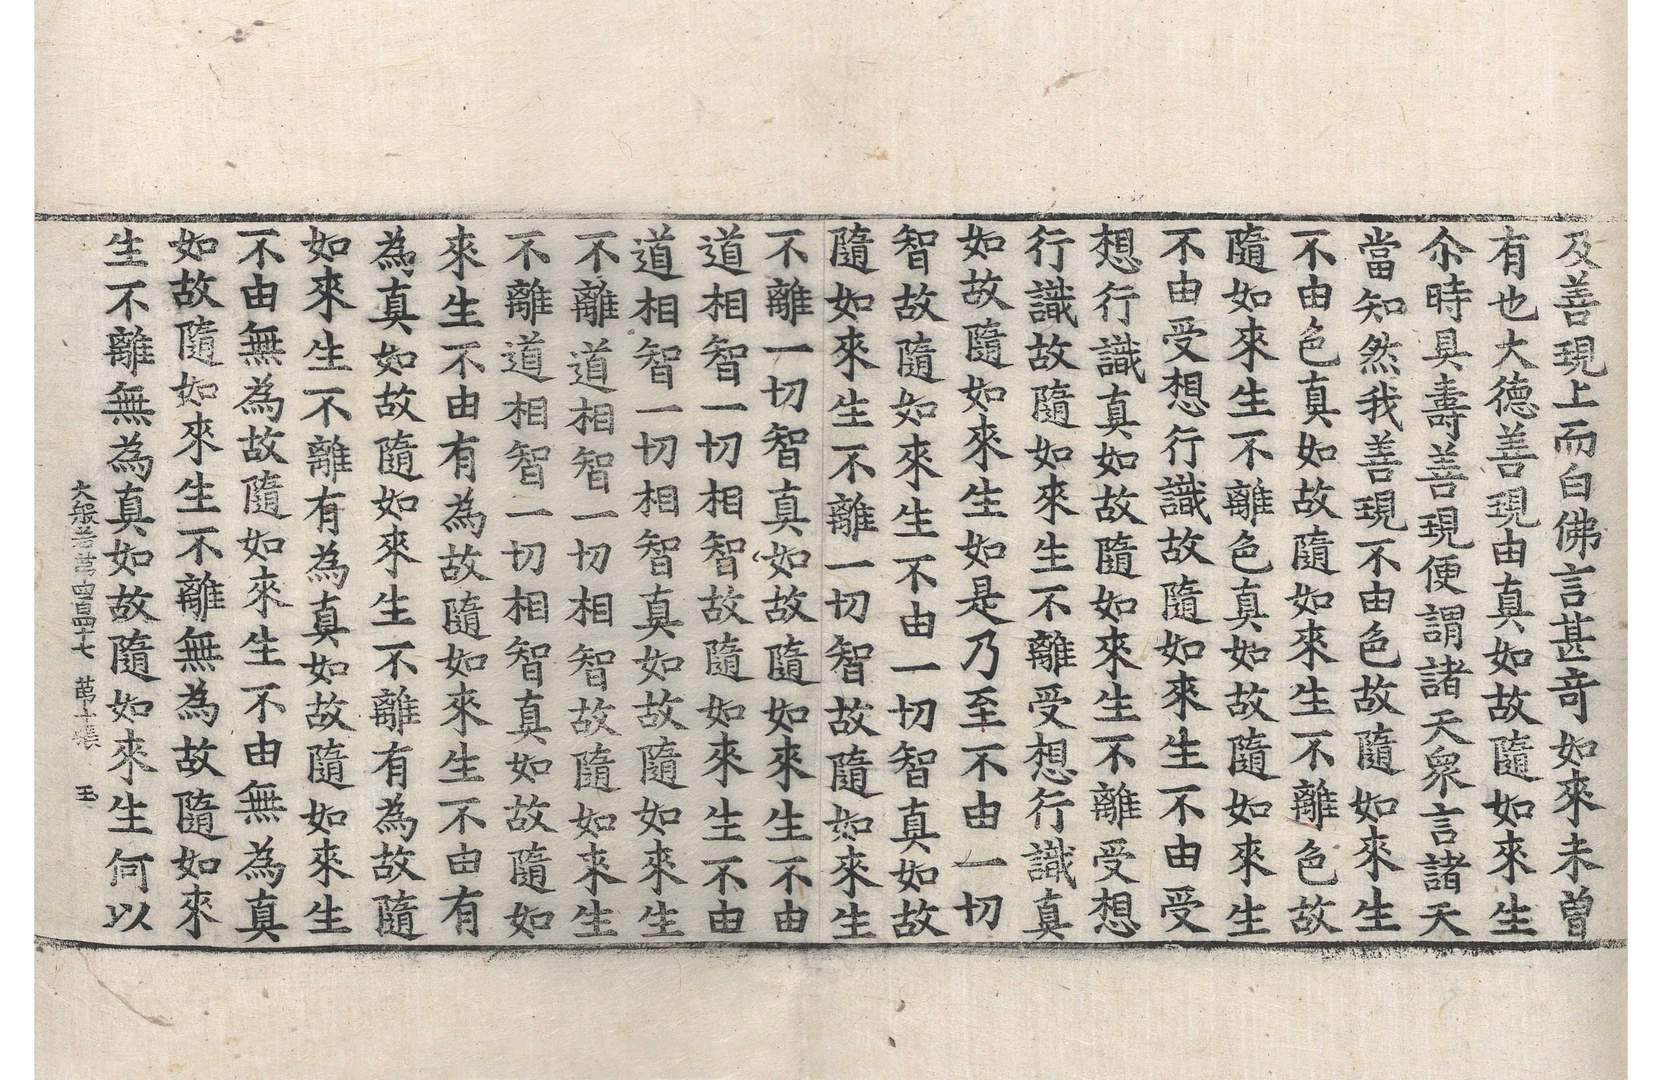 及善現上而白佛言甚奇如來未曾
有也大德善現由真如故隨如來生
尒時具壽善現便謂諸天衆言諸天
當知然我善現不由色故隨如來生
不由色真如故隨如來生不離色故
隨如來生不離色真如故隨如來生
不由受想行識故隨如來生不由受
想行識真如故隨如來生不離受想
行識故隨如來生不離受想行識真
如故隨如來生如是乃至不由一切
智故隨如來生不由一切智真如故
隨如來生不離一切智故隨如來生
不離一切智真如故隨如來生不由
道相智一切相智故隨如來生不由
道相智一切相智真如故隨如來生
不離道相智一切相智故隨如來生
不離道相智一切相智真如故隨如
來生不由有為故隨如來生不由有
為真如故隨如來生不離有為故隨
如來生不離有為真如故隨如來生
不由無為故隨如來生不由無為真
如故隨如來生不離無為故隨如來
生不離無為真如故隨如來生何以
大般若第四百四十七 第十張 玉